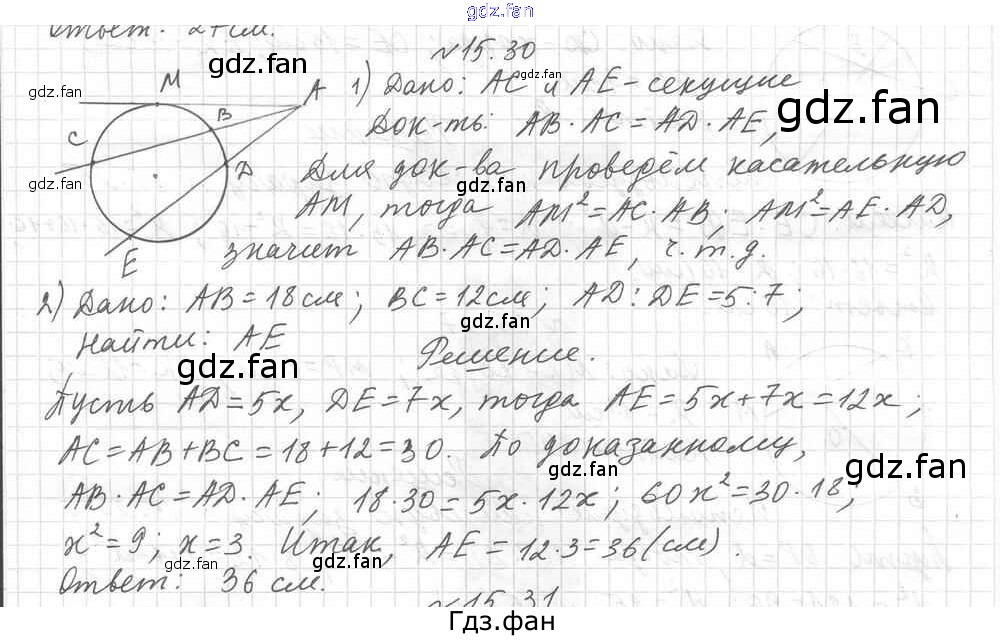 gdz.fan
Ответ: 27 см.
№15.30
gdz.fan
M
A
B
C
D
E
1) Дано: AC и AE - секущие
gdz.fan
gdz.fan
gdz.fan
Док-ть: AB · AC = AD · AE,
Для док-ва проведём касательную
gdz.fan
gdz.fan
AM, тогда AM² = AC · AB; AM² = AE · AD,
значит AB · AC = AD · AE, ч.т.д.
gdz.fan
2) Дано: AB = 18 см; BC = 12 см; AD : DE = 5 : 7;
gdz.fan
Найти: AE
Решение.
gdz.fan
Пусть AD = 5x, DE = 7x, тогда AE = 5x + 7x = 12x;
AC = AB + BC = 18 + 12 = 30. По доказанному,
gdz.fan
gdz.fan
AB · AC = AD · AE; 18 · 30 = 5x · 12x; 60x² = 30 · 18;
x² = 9; x = 3. Итак, AE = 12 · 3 = 36 (см).
gdz.fan
gdz.fan
Ответ: 36 см.
gdz.fan
№15.31
Гдз.фан